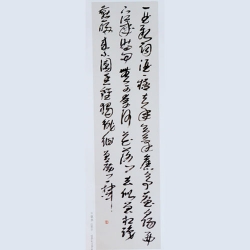 一曲新詞酒一杯去年天氣舊亭臺夕陽西
下幾時回無可奈何花落去似曾相識
燕歸來小園香徑獨徘徊